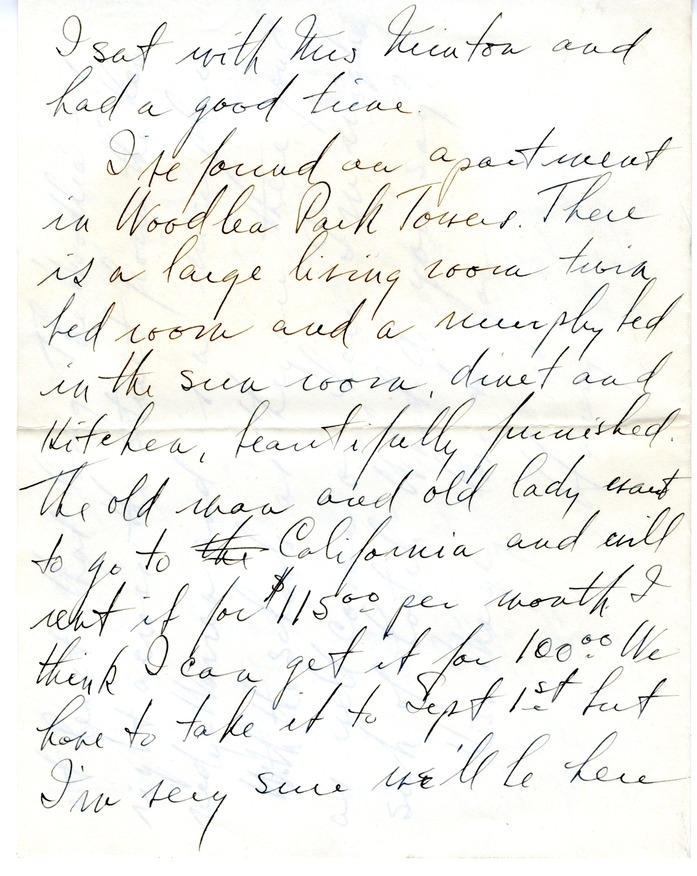 I sat with Mrs Minton and
had a good time.
I've found an apartment
in Woodlea Park Towers. There
is a large living room twin
bed room and a murphy bed
in the sun room, dinet and
Kitchen, beautifully furnished.
The old man and old lady want
to go to the California and will
rent it for $115 00 per month I
think I can get it for 100 00 We
have to take it to Sept 1st but
I'm very sure we'll be here